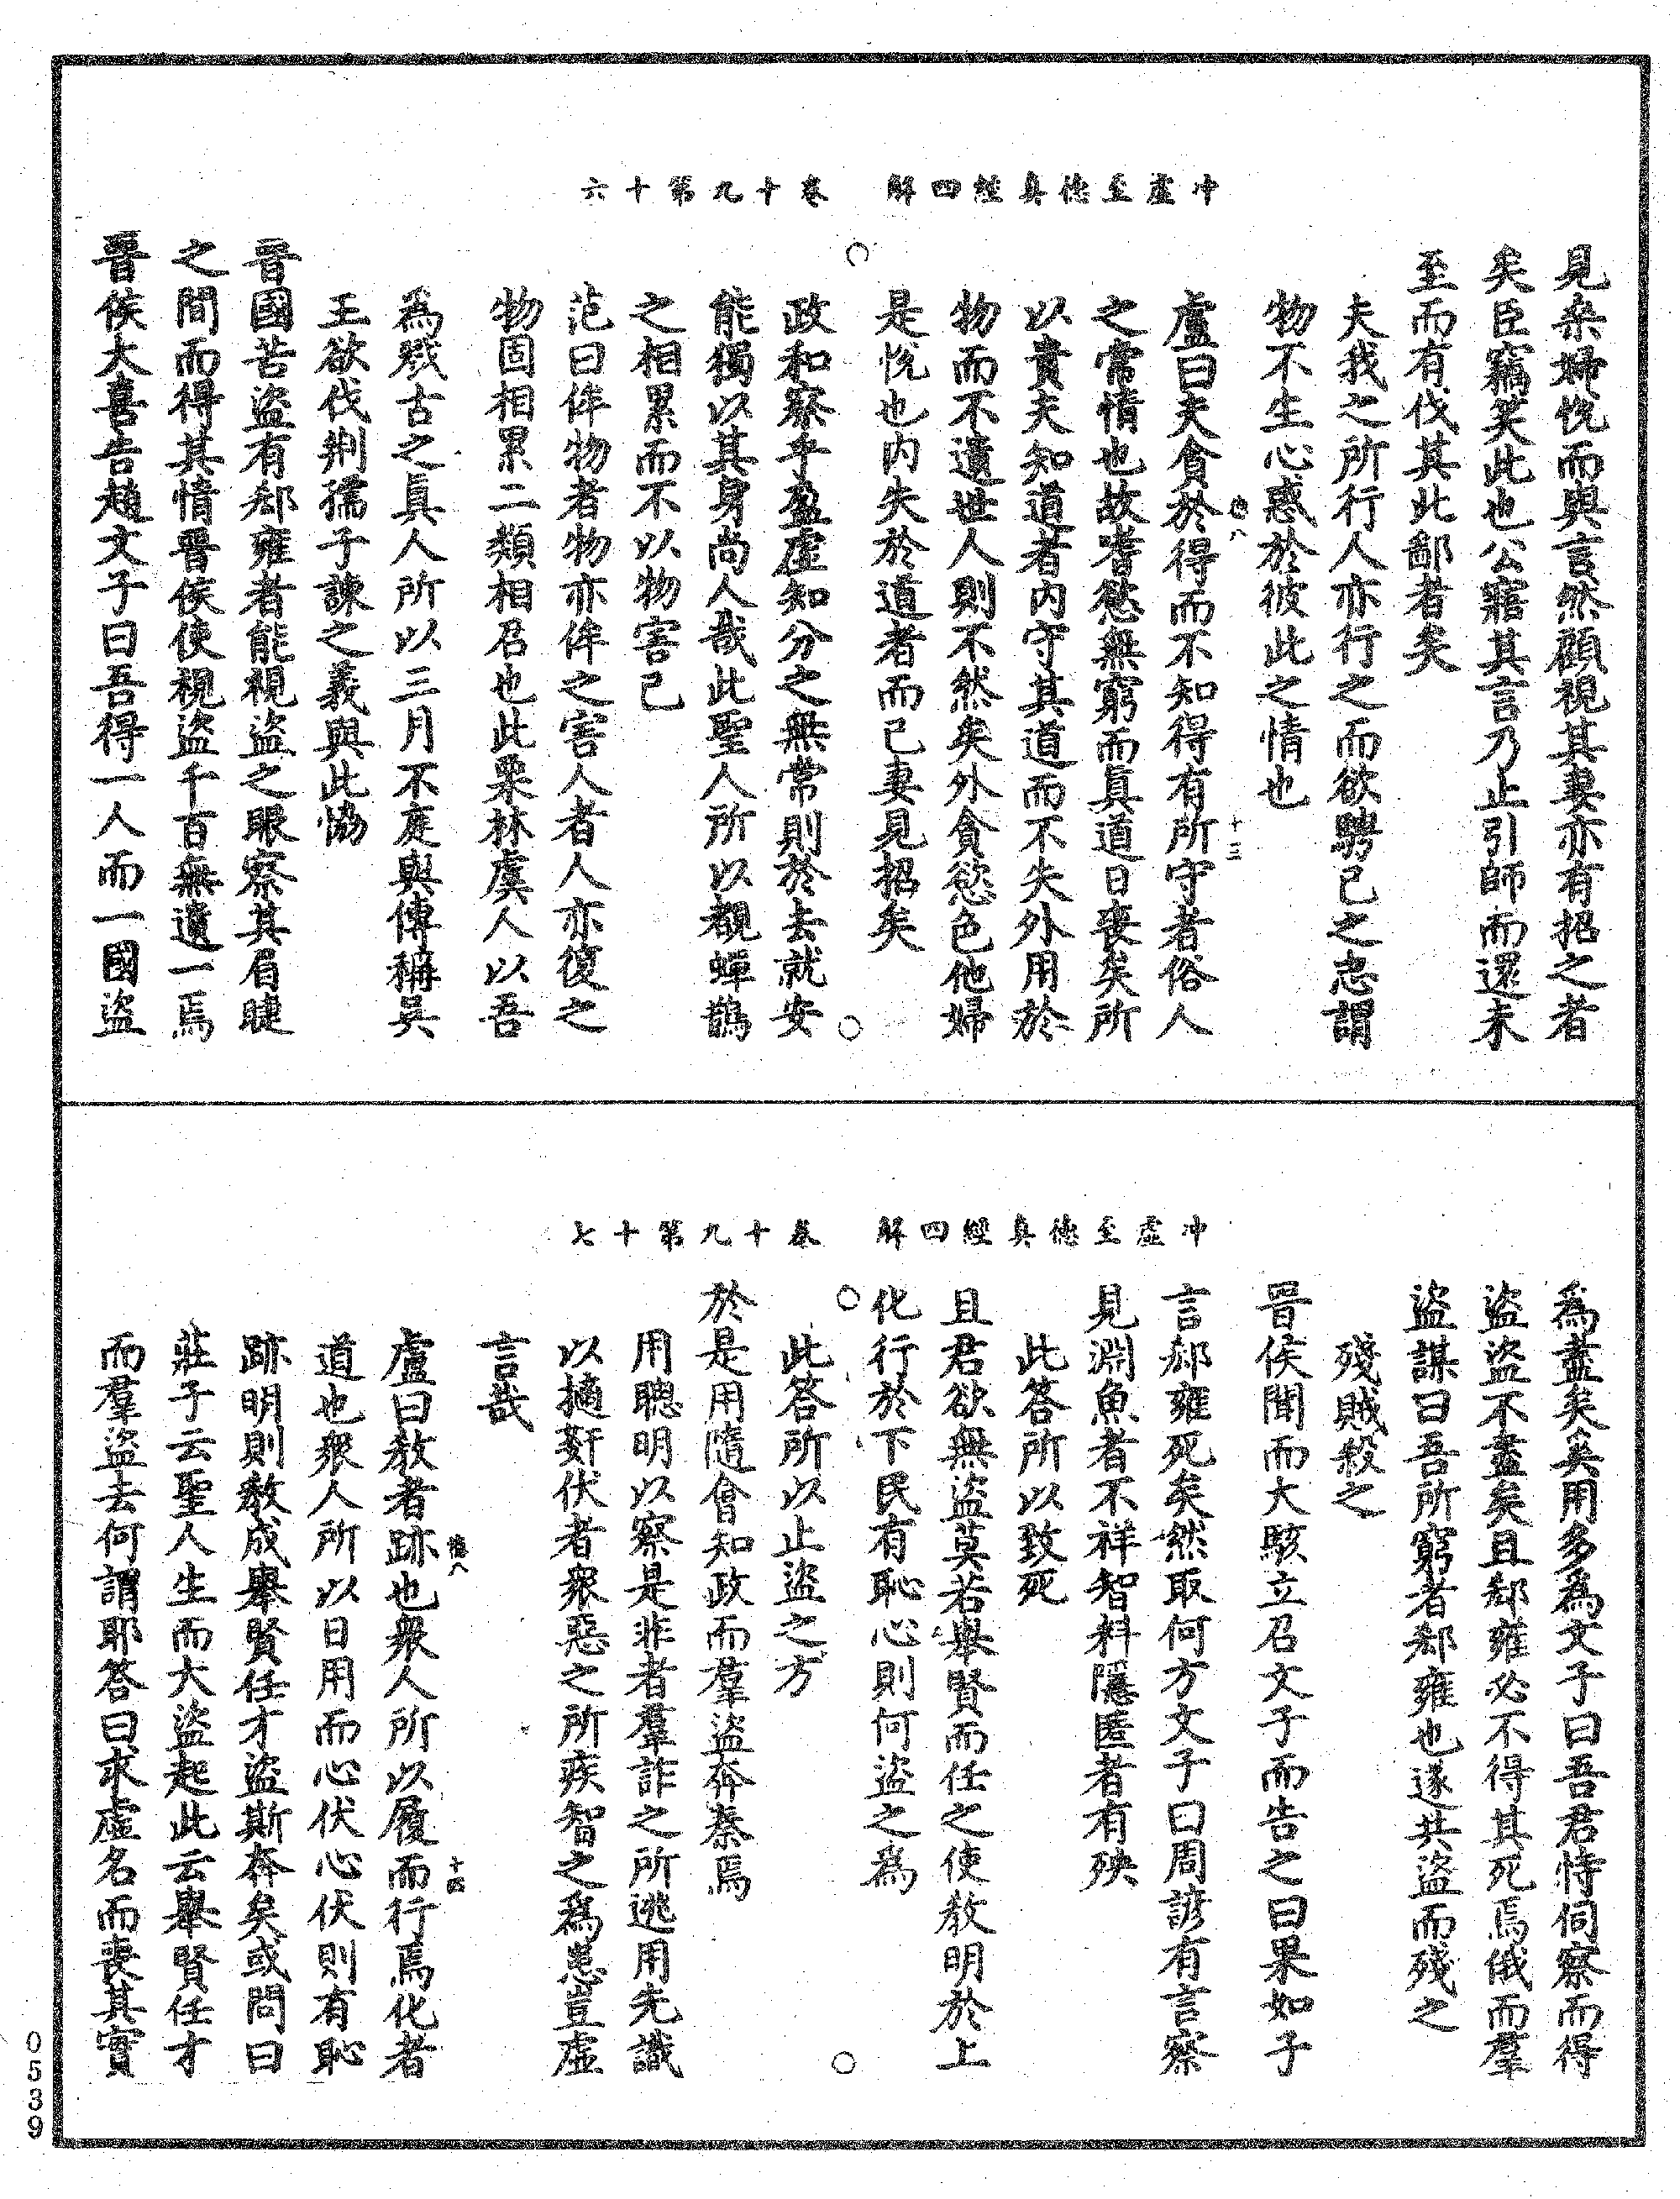 冲虛至德真經四解　卷十九第十六
見桑婦恱而與言然顧視其妻亦有招之者
矣臣竊笑此也公寤其言乃止引師而還未
至而有伐其北鄙者矣
夫我之所行人亦行之而欲騁己之志謂
物不生心惑於彼此之情也
盧曰夫貪於得而不知得有所守者俗人
之常情也故嗜慾無窮而眞道日喪矣所
以貴夫知道者內守其道而不失外用於
物而不遺世人則不然矣外貪慾色他婦
是恱也內失於道者而己妻見招矣
政和察乎盈虛知分之無常則於去就安
能獨以其身尚人哉此聖人所以覩蟬鵲
之相累而不以物害己
范曰侔物者物亦侔之害人者人亦復之
物固相累二類相召也此栗林虞人以吾
為戮古之眞人所以三月不庭與傳稱吳
王欲伐荆孺子諫之義與此恊
晉國苦盜有郄雍者能視盜之眼察其眉睫
之間而得其情晉侯使視盜千百無遺一焉
晉侯大喜告趙文子曰吾得一人而一國盜
德八
十三
冲虛至德真經四解　卷十九第十七
為盡矣奚用多為文子曰吾君恃伺察而得
盜盜不盡矣且郄雍必不得其死焉俄而羣
盜謀曰吾所窮者郄雍也遂共盜而殘之
殘賊殺之
晉侯聞而大駭立召文子而告之曰果如子
言郄雍死矣然取何方文子曰周諺有言察
見淵魚者不祥智料隱匿者有殃
此答所以致死
且君欲無盜莫若舉賢而任之使教明於上
化行於下民有恥心則何盜之為
此答所以止盜之方
於是用隨會知政而羣盜奔秦焉
用聰明以察是非者羣詐之所逃用先識
以擿姧伏者衆惡之所疾智之爲患豈虛
言哉
盧曰教者跡也衆人所以履而行焉化者
道也衆人所以日用而心伏心伏則有恥
跡明則教成舉賢任才盜斯奔矣或問曰
莊子云聖人生而大盜起此云舉賢任才
而羣盜去何謂耶答曰求虛名而喪其實
德八
十四
0539